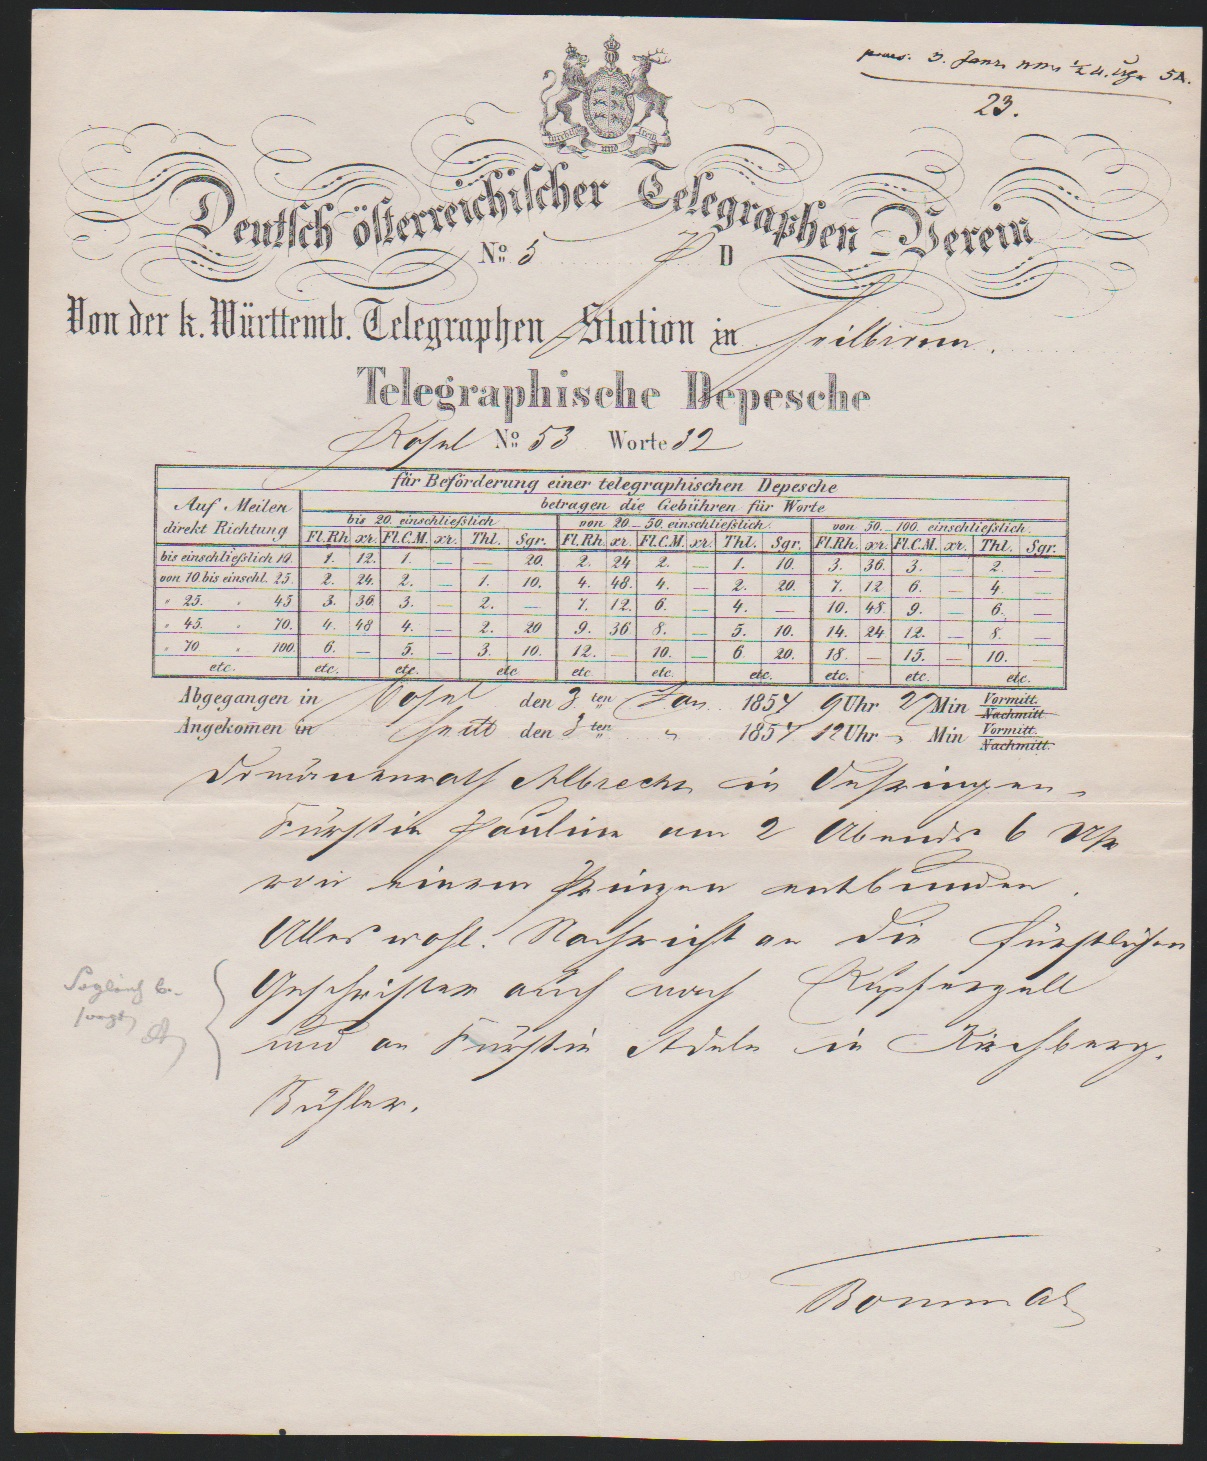 praes. 3. Janr. 1/2 4. Uhr 54.
23.
Deutsch österreichischer Telegraphen-Verein
No 5 D
Von der k. Württemb. Telegraphen Station in Heilbronn.
Telegraphische Depesche
Kosel No 53 Worte 32
für Beförderung einer telegraphischen Depesche
Auf Meilen direkt Richtung betragen die Gebühren für Worte
bis 20. einschließlich von 20-50. einschließlich. von 50.-100. einschließlich.
Fl.Rh. xr. Fl.C.M. xr. Thl. Sgr. Fl.Rh. xr. Fl.C.M. xr. Thl. Sgr. Fl.Rh. xr. Fl.C.M. xr. Thl. Sgr.
bis einschließlich 10. 1. 12. 1. — — 20. 2. 24 2. — 1. 10. 3. 36. 3. — 2. —
von 10 bis einschl. 25. 2. 24. 2. — 1. 10. 4. 48. 4. — 2. 20. 7. 12 6. — 4. —
" 25. " 45 3. 36. 3. — 2. — 7. 12. 6. — 4. — 10. 48. 9. — 6. —
" 45. " 70. 4. 48 4. — 2. 20 9. 36 8. — 5. 10. 14. 24 12. — 8. —
" 70 " 100. 6. — 5. — 3. 10. 12. — 10. — 6 20. 18. — 15. — 10. —
etc. etc. etc. etc etc. etc. etc. etc. etc. etc.
Abgegangen in Kosel den 3 ten Jan. 1854 9 Uhr 27 Min Vormitt. Nachmitt
Angekomen in Heilb den 3 ten " 1854 12 Uhr " Min Vormitt. Nachmitt.
Domänenrath Albrecht in Oehringen.
Fürstin Pauline am 2 Abends 6 Uhr
von einem Prinzen entbunden.
Alles wohl. Nachricht an die fürstlichen
Geschwister auch nach Kupferzell
und an Fürstin Adele in Kirchberg.
Bühler.
Sogleich be-
sorgt A